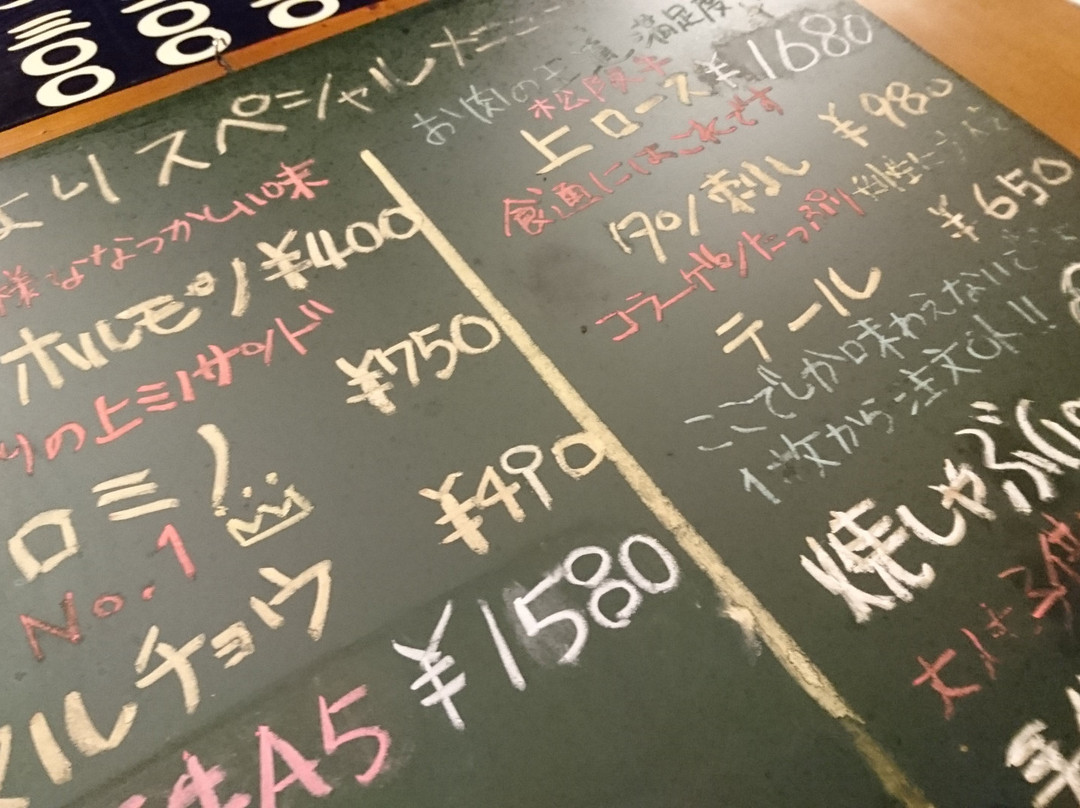 より スペシャルメニ
様ななつかしい味
ホルモン ¥400
りの上ミノサンド
¥750
ロミノ
No.1
¥490
ルチョウ
¥1580
牛A5
お肉の
満足度
松阪牛
上ロース ¥1680
食通にはこれです
刺し ¥980
コラーゲンたっぷり
テール ¥650
ここでしか味わえない
1枚から注文OK!!
焼しゃぶ